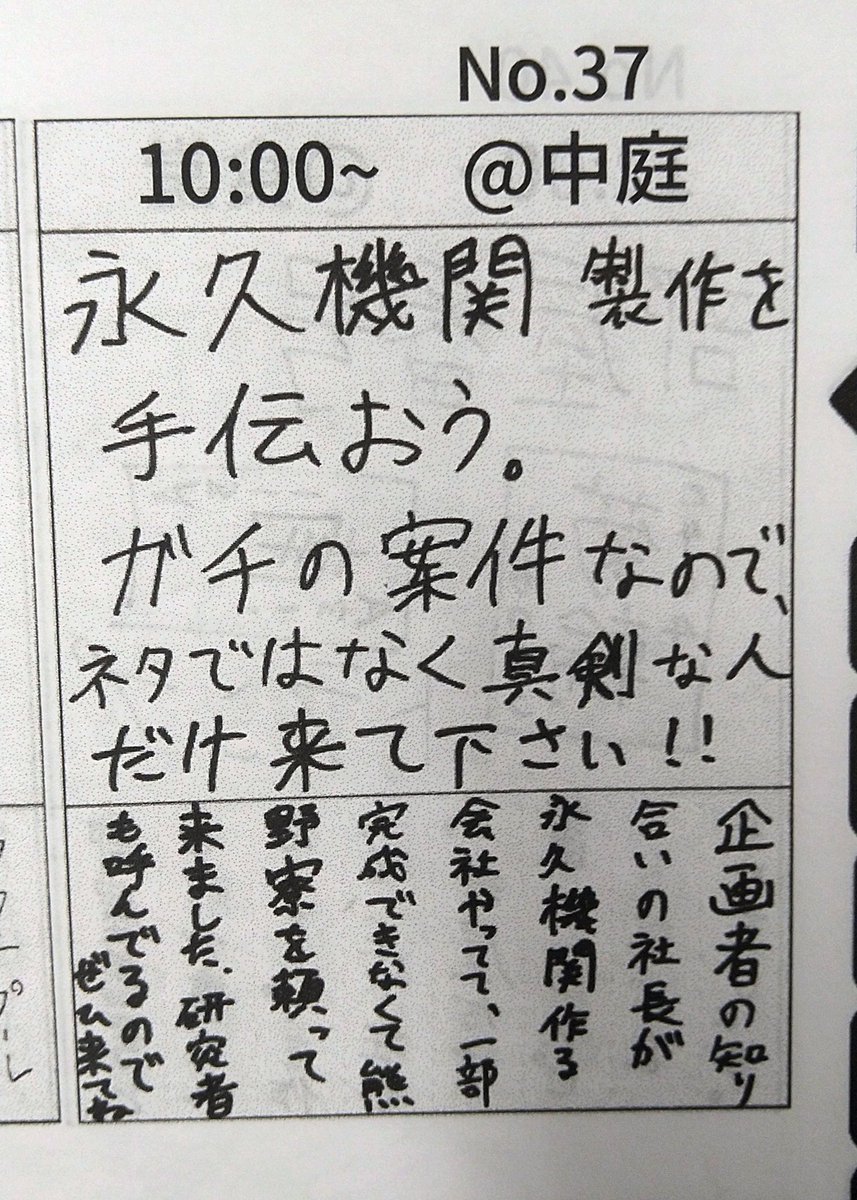 No.37
10:00~ @中庭
永久機関 製作を
手伝おう。
ガチの案件なので、
ネタではなく真剣な人
だけ来て下さい!!
企画者の知り
合いの社長が
永久機関作る
会社やってて、一部
完成できなくて熊
野寮を頼って
来ました。研究者
も呼んでるので
ぜひ来てね